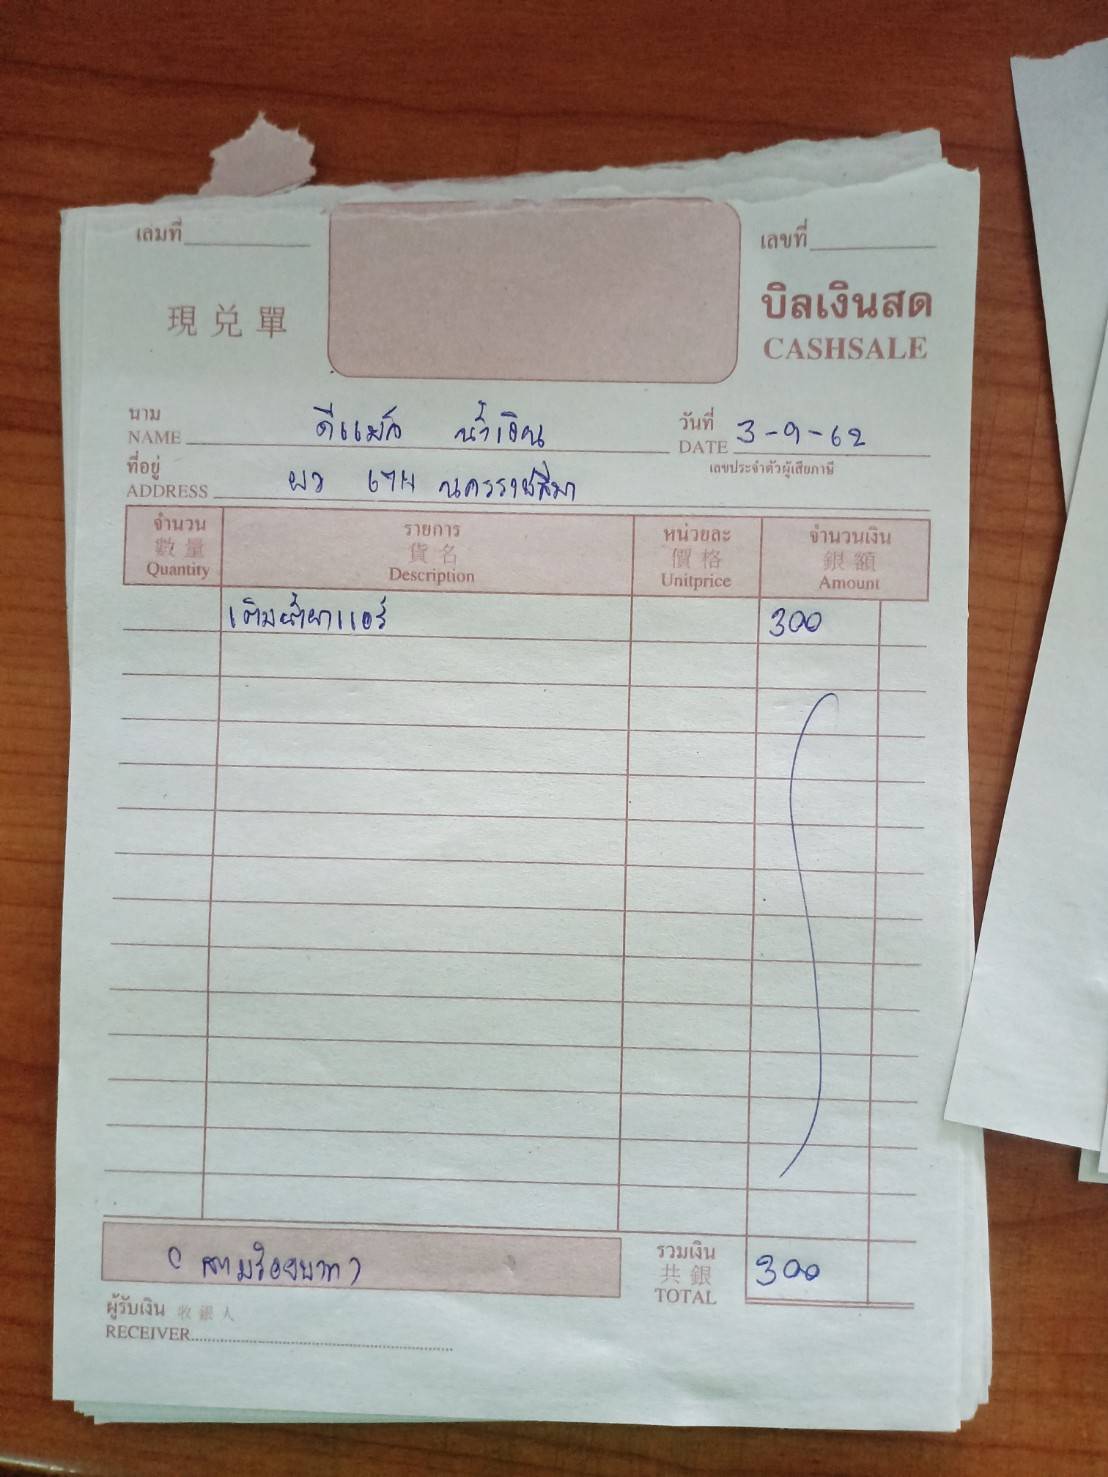 เล่มที่ เลขที่
現兑單 บิลเงินสด
CASHSALE
นาม ดีแม็ก น้ำเงิน วันที่ 3-9-62
NAME DATE
ที่อยู่ ผว 674 นครราชสีมา เลขประจำตัวผู้เสียภาษี
ADDRESS
จำนวน รายการ หน่วยละ จำนวนเงิน
數量 貨名 價格 銀額
Quantity Description Unitprice Amount
เติมน้ำยาแอร์ 300
(สามร้อยบาท) รวมเงิน 300
共銀
TOTAL
ผู้รับเงิน 收銀人
RECEIVER